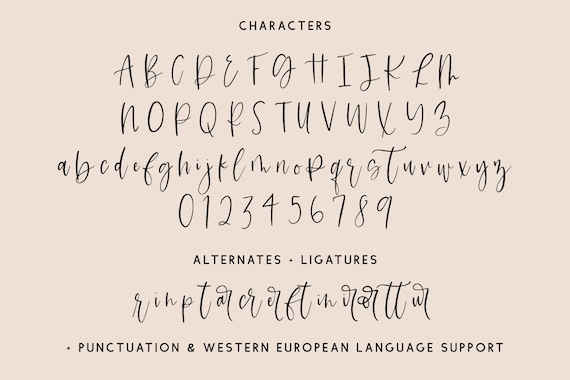 CHARACTERS
A B C D E F G H I J K L M
N O P Q R S T U V W X Y Z
a b c d e f g h i j k l m n o p q r s t u v w x y z
0 1 2 3 4 5 6 7 8 9
ALTERNATES + LIGATURES
r i n p t
+ PUNCTUATION & WESTERN EUROPEAN LANGUAGE SUPPORT